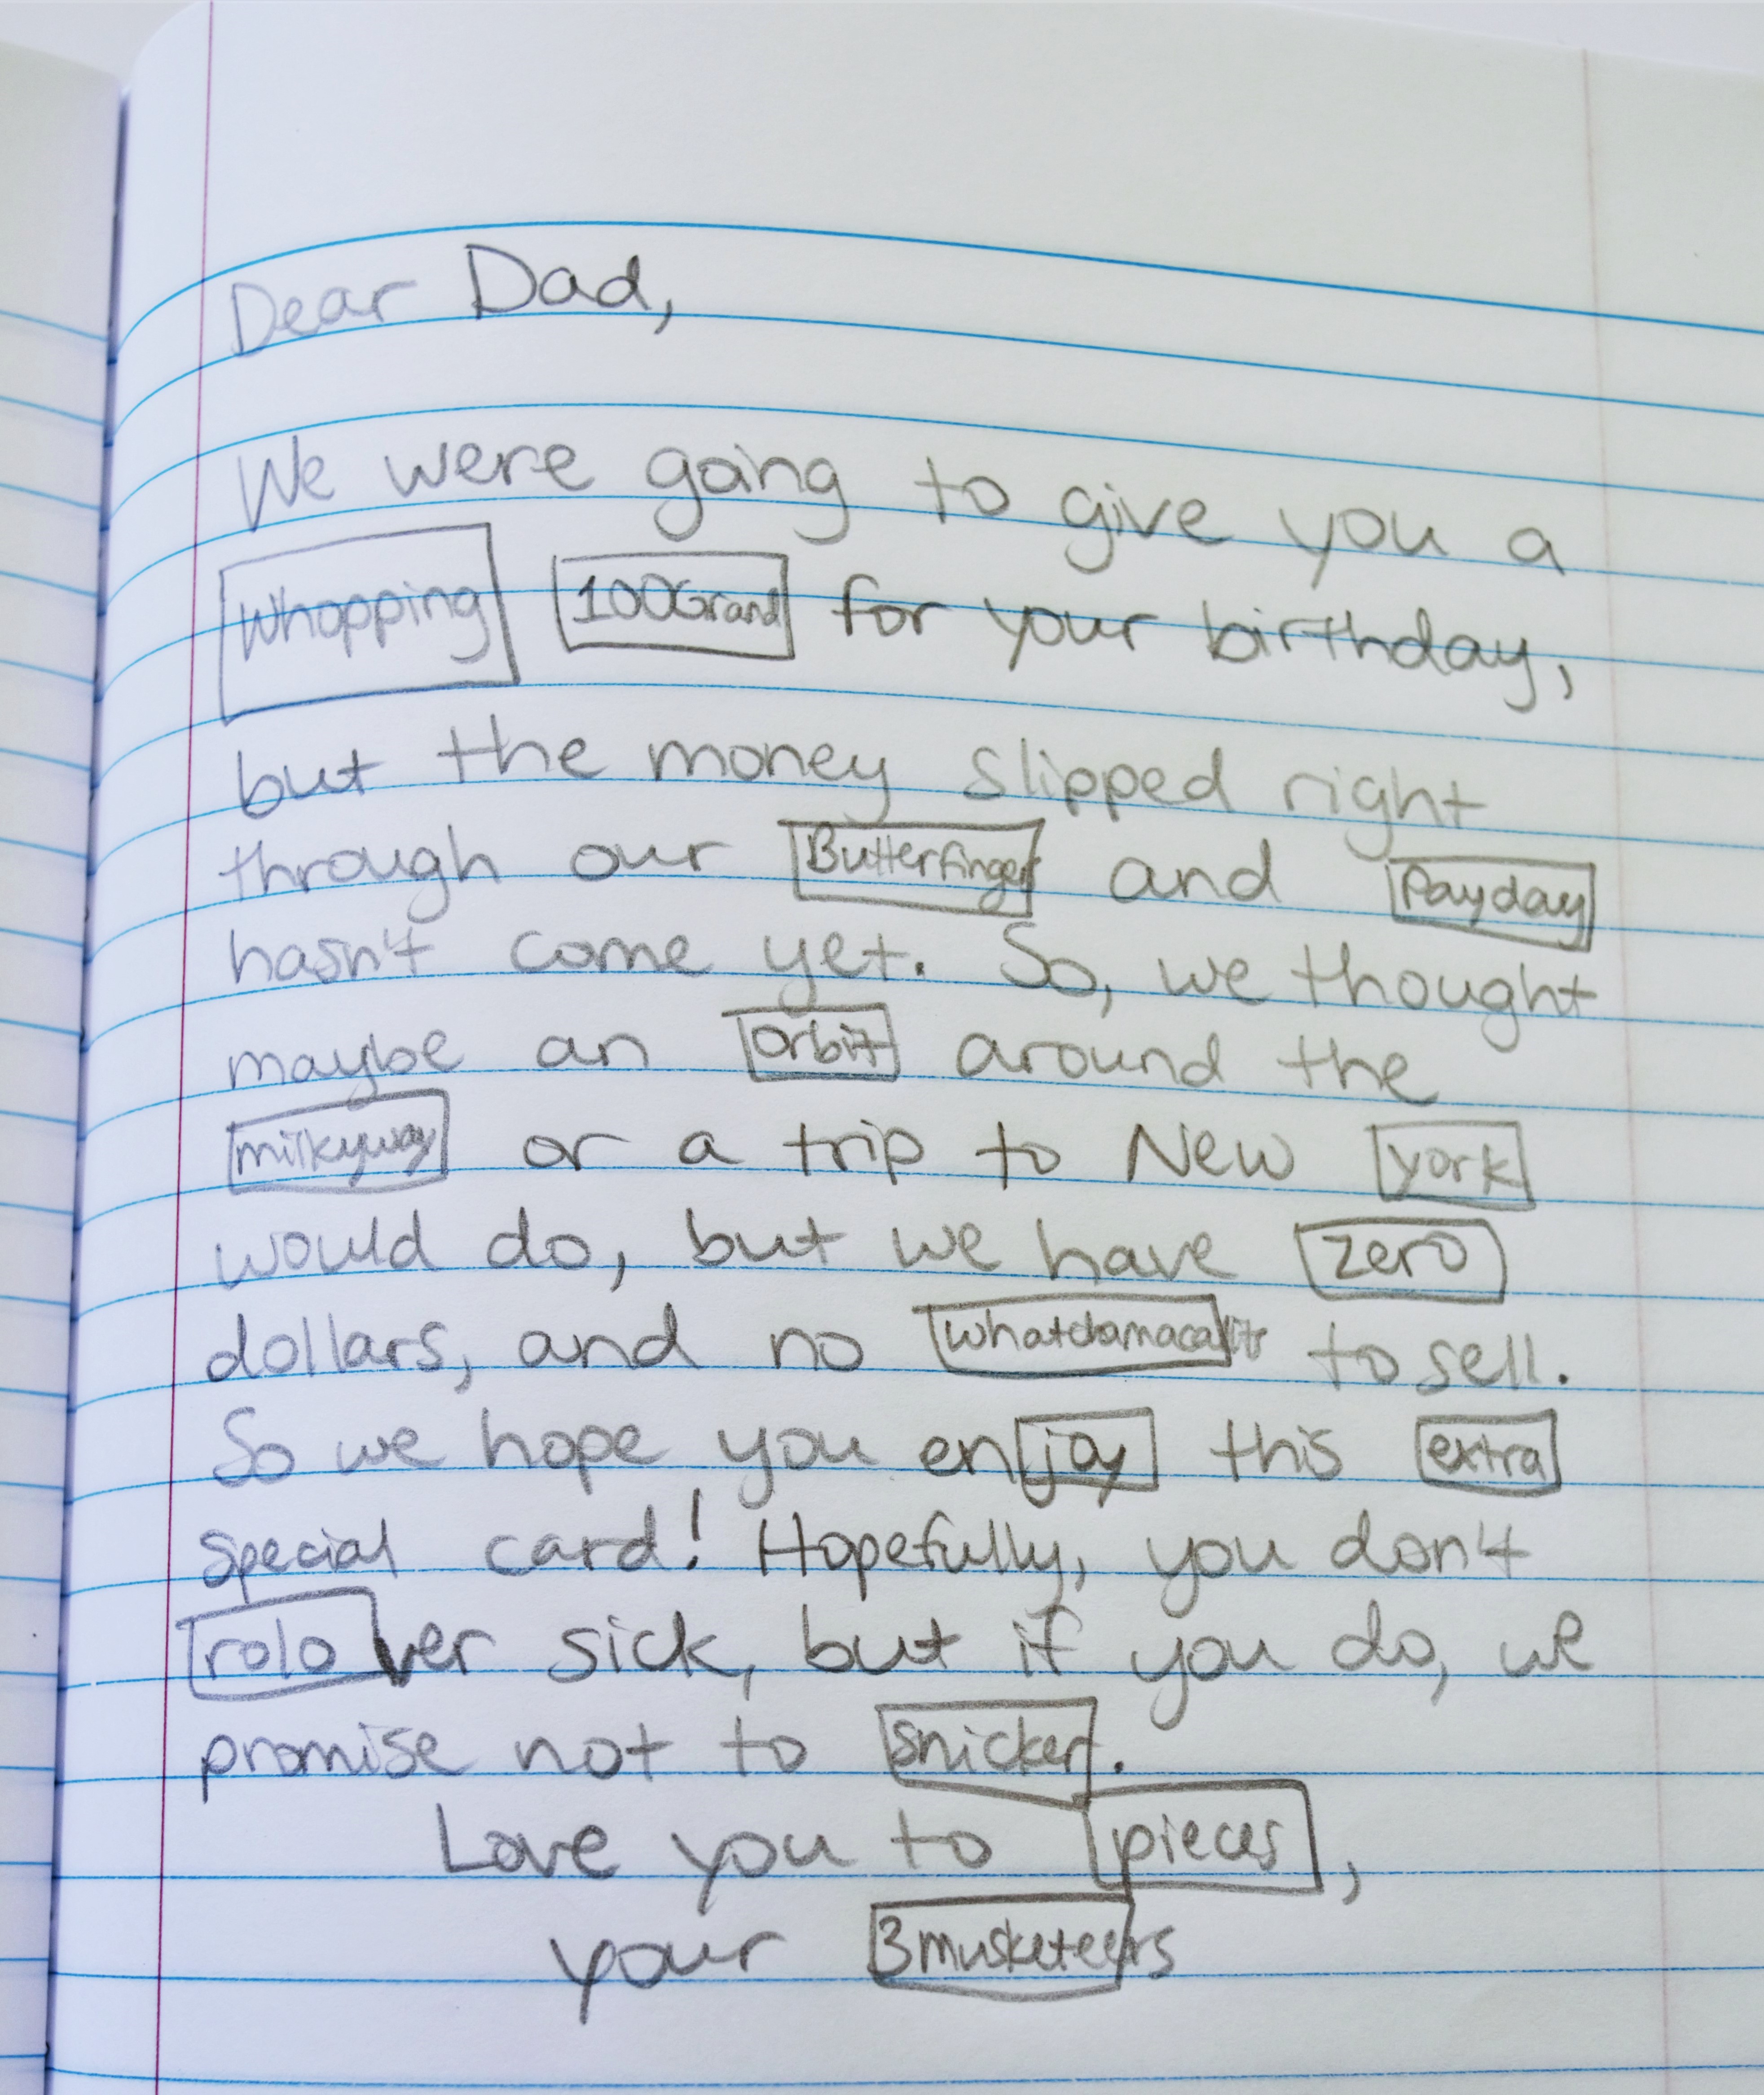 Dear Dad,
We were going to give you a
Whopping 100Grand for your birthday,
but the money slipped right
through our Butterfinger and Payday
hasn't come yet. So, we thought
maybe an orbit around the
milkyway or a trip to New york
would do, but we have zero
dollars, and no whatchamacallit to sell.
So we hope you enjoy this extra
special card! Hopefully, you don't
rolo ver sick, but if you do, we
promise not to snicker.
Love you to pieces,
your 3musketeers